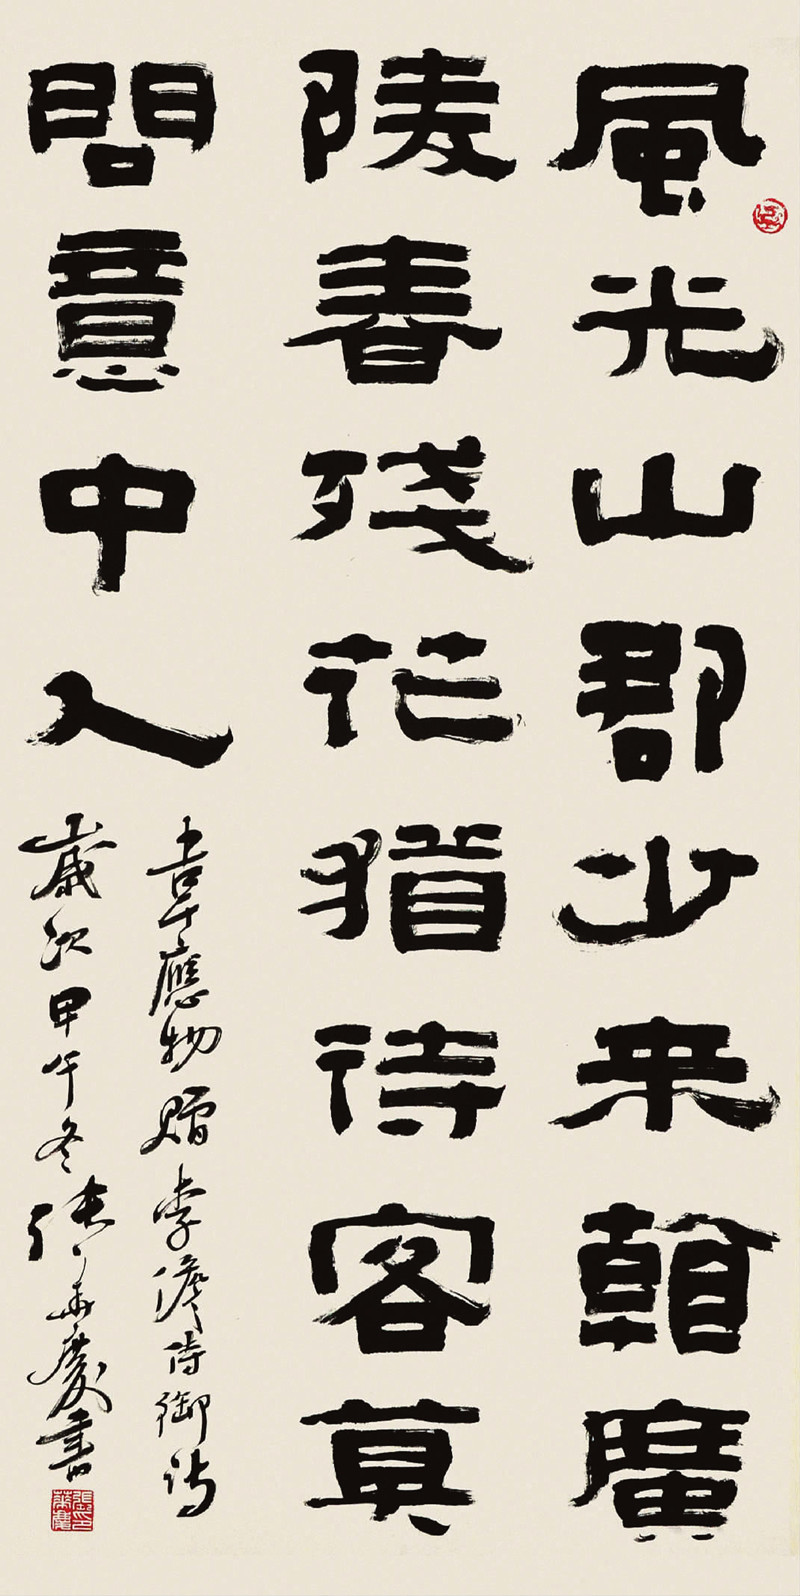 風光山郡少来看廣
陵春殘花猶待客莫
問意中人
書韋應物贈李儋侍御詩
歲次甲午冬張華慶書
張印華慶